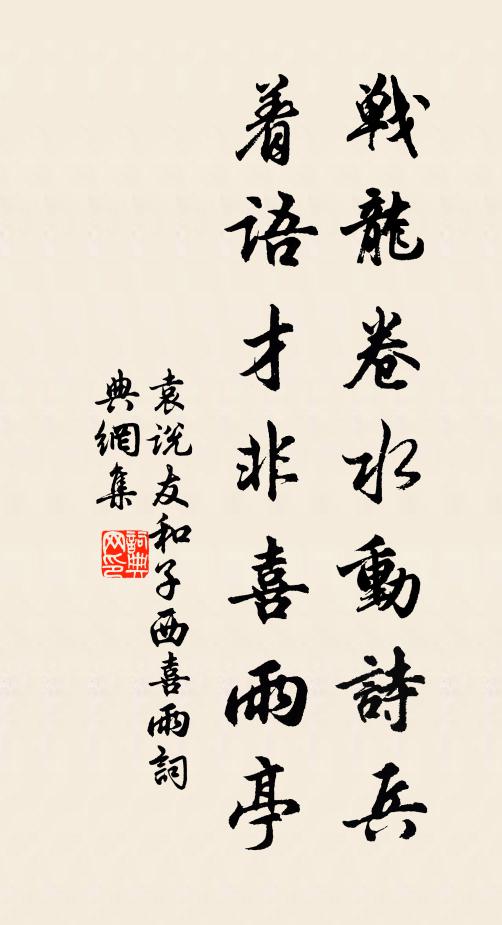 戰龍卷水動詩兵
着語才非喜雨亭
袁说友和子西喜雨詞
典網集
詞典
网印